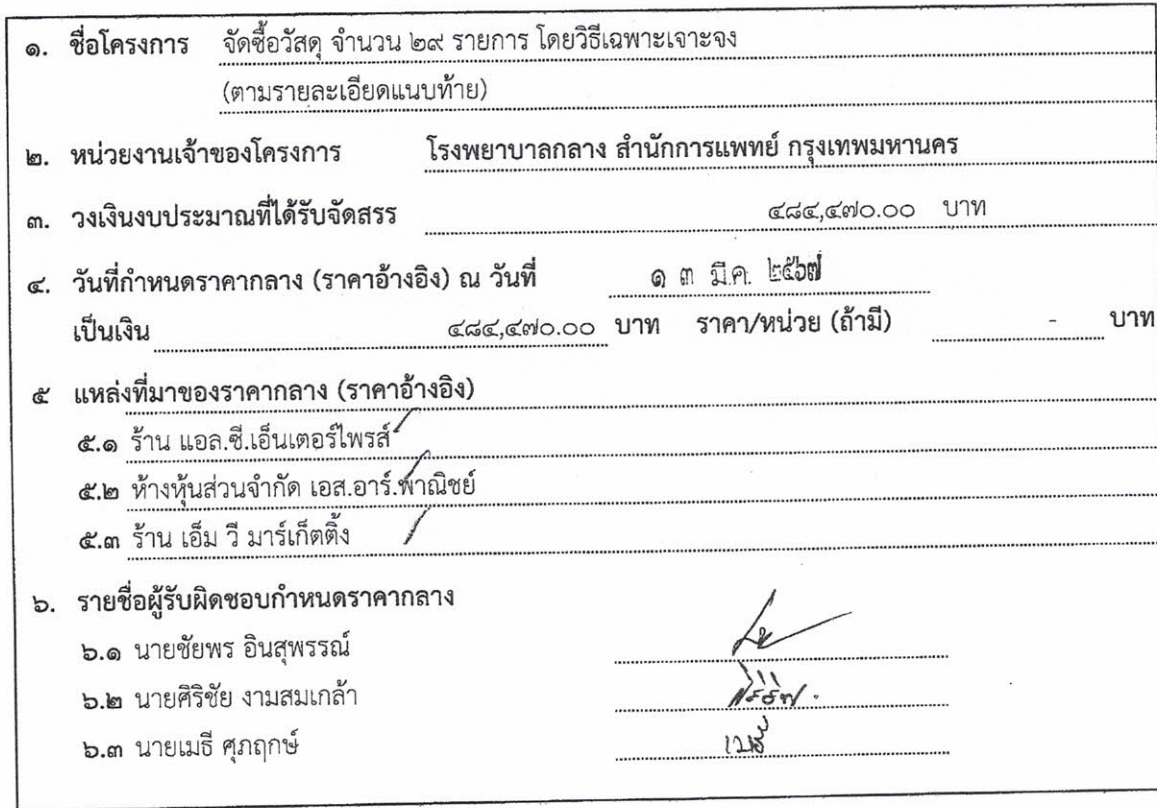 ๑. ชื่อโครงการ จัดซื้อวัสดุ จำนวน ๒๙ รายการ โดยวิธีเฉพาะเจาะจง
(ตามรายละเอียดแนบท้าย)
๒. หน่วยงานเจ้าของโครงการ โรงพยาบาลกลาง สำนักการแพทย์ กรุงเทพมหานคร
๓. วงเงินงบประมาณที่ได้รับจัดสรร ๔๘๔,๔๗๐.๐๐ บาท
๔. วันที่กำหนดราคากลาง (ราคาอ้างอิง) ณ วันที่ ๑ ๓ มี.ค. ๒๕๖๗
เป็นเงิน ๔๘๔,๔๗๐.๐๐ บาท ราคา/หน่วย (ถ้ามี) - บาท
๕ แหล่งที่มาของราคากลาง (ราคาอ้างอิง)
๕.๑ ร้าน แอล.ซี.เอ็นเตอร์ไพรส์
๕.๒ ห้างหุ้นส่วนจำกัด เอส.อาร์.พาณิชย์
๕.๓ ร้าน เอ็ม วี มาร์เก็ตติ้ง
๖. รายชื่อผู้รับผิดชอบกำหนดราคากลาง
๖.๑ นายชัยพร อินสุพรรณ์
๖.๒ นายศิริชัย งามสมเกล้า
๖.๓ นายเมธี ศุภฤกษ์